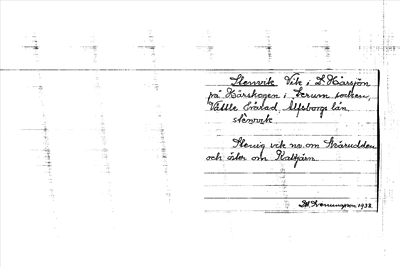 Stenvik Vik i S. Hårsjön
på Hårskogen i Lerum socken,
Vättle härad, Älfsborgs län.
stenvik
Stenig vik no. om Svårudden
och öster om Kaltjärn.
1932